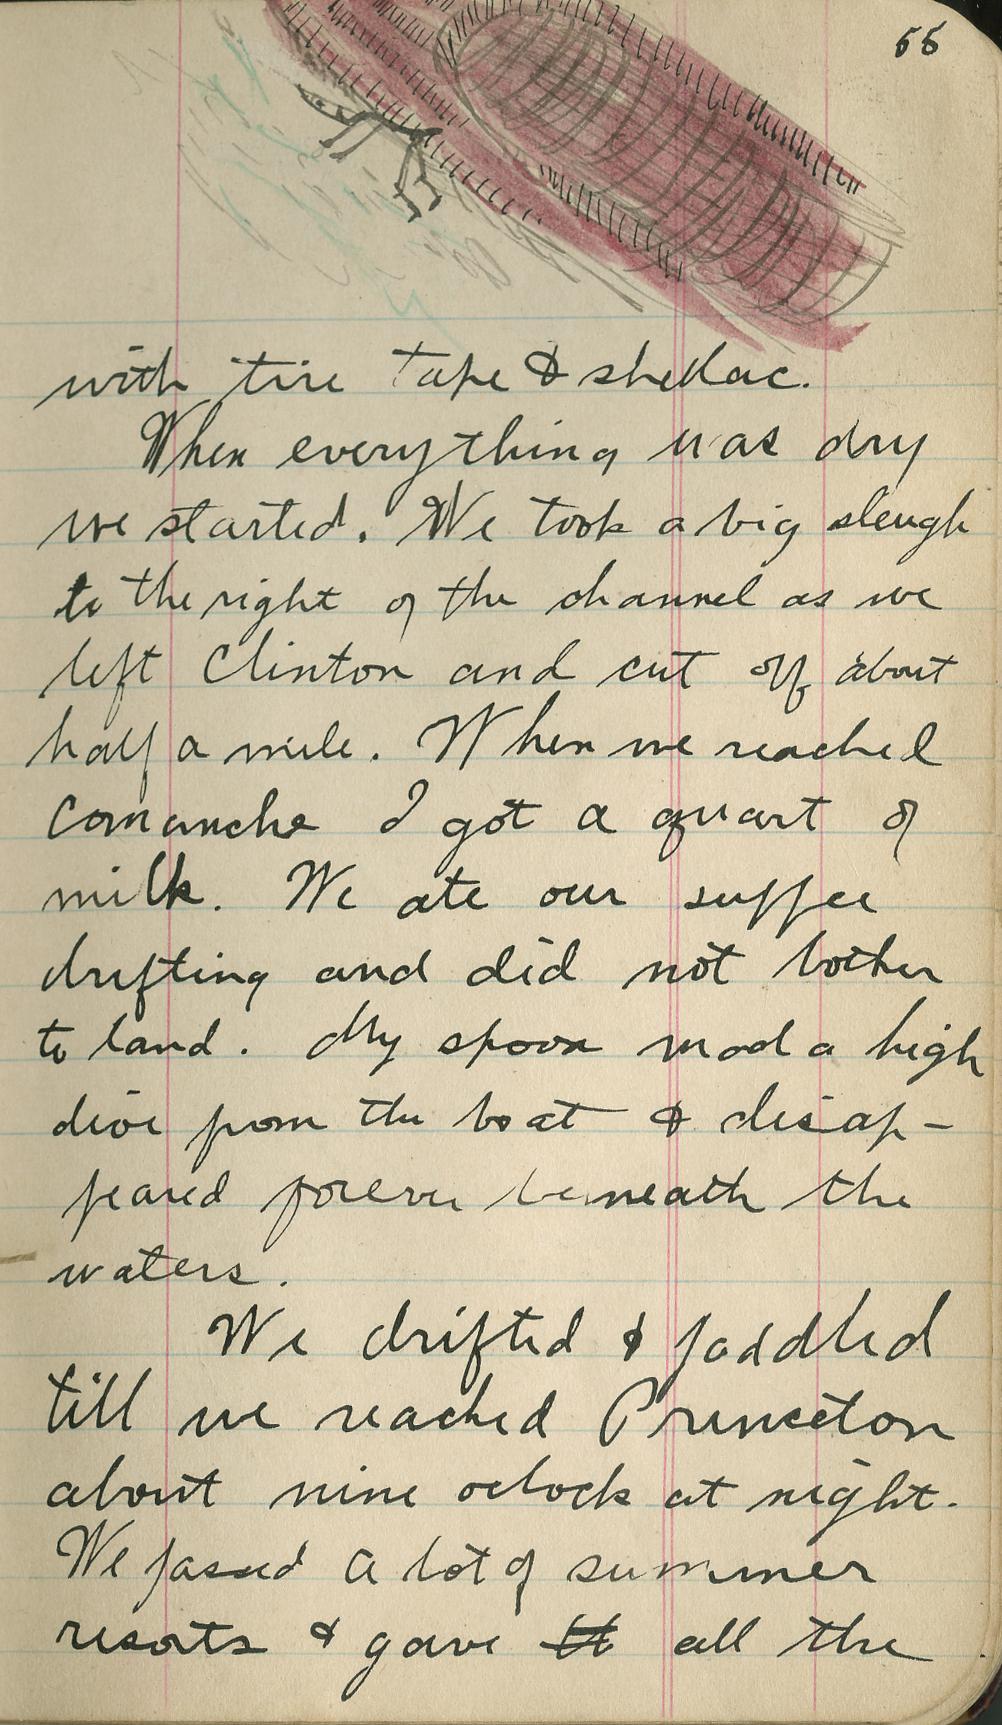 55
with tire tape & shellac.
When everything was dry
we started. We took a big slough
to the right of the channel as we
left Clinton and cut off about
half a mile. When we reached
Comanche I got a quart of
milk. We ate our supper
drifting and did not bother
to land. My spoon mad a high
dive from the boat & disap-
peared forever beneath the
waters.
We drifted & paddled
till we reached Princeton
about nine oclock at night.
We passed a lot of summer
resorts & gave all the